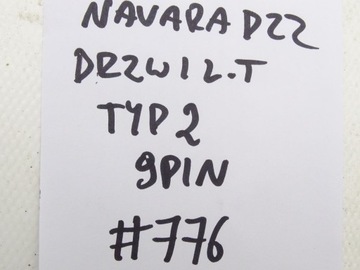 NAVARA D22
DRZWI L.T
TYP 2
9PIN
#776